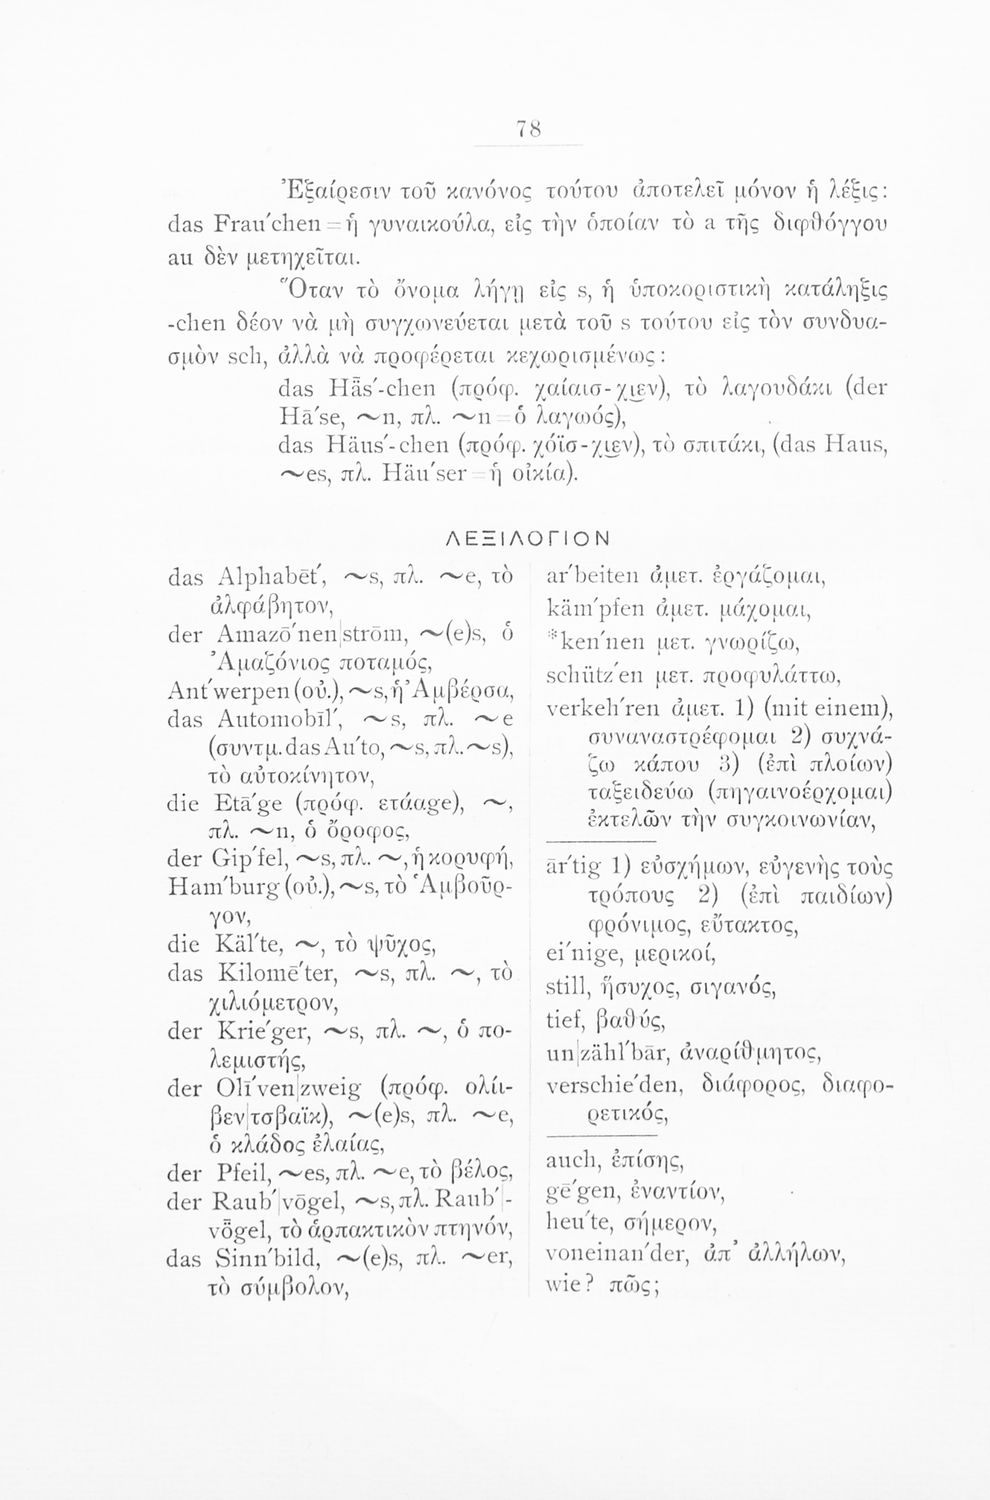 78
Ἐξαίρεσιν τοῦ κανόνος τούτου ἀποτελεῖ μόνον ἡ λέξις:
das Frau′chen = ἡ γυναικούλα, εἰς τὴν ὁποίαν τὸ a τῆς διφθόγγου
au δὲν μετηχεῖται.
Ὅταν τὸ ὄνομα λήγῃ εἰς s, ἡ ὑποκοριστικὴ κατάληξις
-chen δέον νὰ μὴ συγχωνεύεται μετὰ τοῦ s τούτου εἰς τὸν συνδυα-
σμὸν sch, ἀλλὰ νὰ προφέρεται κεχωρισμένως:
das Häs′-chen (πρόφ. χαίαισ-χιεν), τὸ λαγουδάκι (der
Hā′se, ~n, πλ. ~n = ὁ λαγωός),
das Häus′-chen (πρόφ. χόϊσ-χιεν), τὸ σπιτάκι, (das Haus,
~es, πλ. Häu′ser = ἡ οἰκία).
ΛΕΞΙΛΟΓΙΟΝ
das Alphabēt′, ~s, πλ. ~e, τὸ
ἀλφάβητον,
der Amazō′nen|strōm, ~(e)s, ὁ
Ἀμαζόνιος ποταμός,
Ant′werpen (οὐ.), ~s, ἡ Ἀμβέρσα,
das Automobīl′, ~s, πλ. ~e
(συντμ. das Au′to, ~s, πλ. ~s),
τὸ αὐτοκίνητον,
die Etā′ge (πρόφ. ετάαge), ~,
πλ. ~n, ὁ ὄροφος,
der Gip′fel, ~s, πλ. ~, ἡ κορυφή,
Ham′burg (οὐ.), ~s, τὸ Ἁμβοῦρ-
γον,
die Käl′te, ~, τὸ ψῦχος,
das Kilomē′ter, ~s, πλ. ~, τὸ
χιλιόμετρον,
der Krie′ger, ~s, πλ. ~, ὁ πο-
λεμιστής,
der Olī′ven|zweig (πρόφ. ολίι-
βεν|τσβαϊκ), ~(e)s, πλ. ~e,
ὁ κλάδος ἐλαίας,
der Pfeil, ~es, πλ. ~e, τὸ βέλος,
der Raub′|vōgel, ~s, πλ. Raub′|-
vögel, τὸ ἁρπακτικὸν πτηνόν,
das Sinn′bild, ~(e)s, πλ. ~er,
τὸ σύμβολον,
ar′beiten ἀμετ. ἐργάζομαι,
käm′pfen ἀμετ. μάχομαι,
*ken′nen μετ. γνωρίζω,
schütz′en μετ. προφυλάττω,
verkeh′ren ἀμετ. 1) (mit einem),
συναναστρέφομαι 2) συχνά-
ζω κάπου 3) (ἐπὶ πλοίων)
ταξειδεύω (πηγαινοέρχομαι)
ἐκτελῶν τὴν συγκοινωνίαν,
är′tig 1) εὐσχήμων, εὐγενὴς τοὺς
τρόπους 2) (ἐπὶ παιδίων)
φρόνιμος, εὔτακτος,
ei′nige, μερικοί,
still, ἥσυχος, σιγανός,
tief, βαθύς,
un|zähl′bār, ἀναρίθμητος,
verschie′den, διάφορος, διαφο-
ρετικός,
auch, ἐπίσης,
gē′gen, ἐναντίον,
heu′te, σήμερον,
voneinan′der, ἀπ᾽ ἀλλήλων,
wie? πῶς;